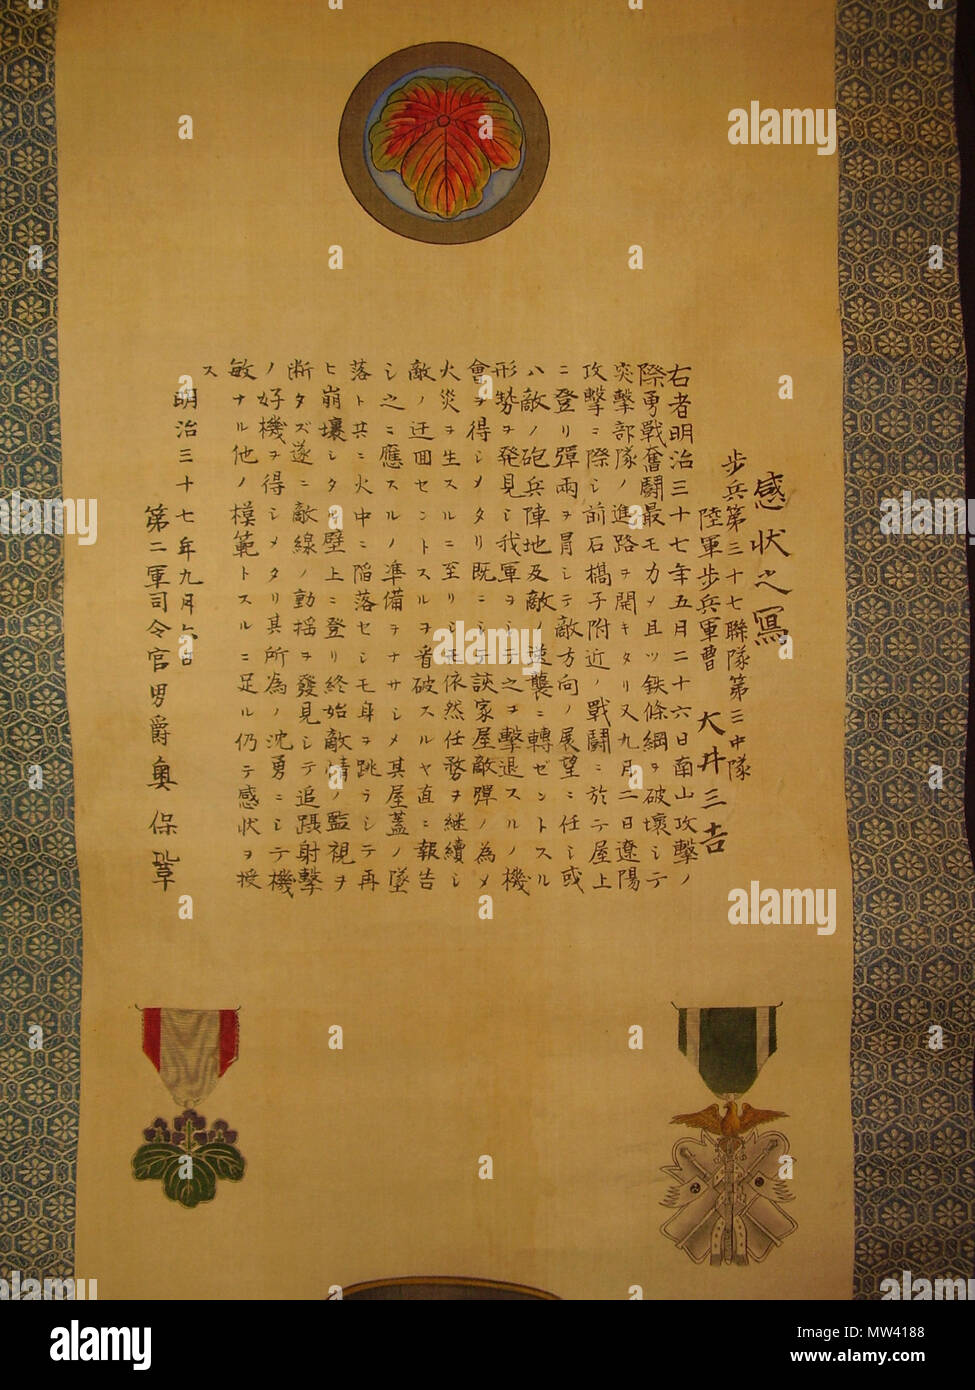 感状之寫
歩兵第三十七聯隊第三中隊
陸軍歩兵軍曹 大井三吉
右者明治三十七年五月二十六日南山攻擊ノ
際勇戰奮鬪最モカメ且ツ鉄條綱ヲ破壞シテ
突擊部隊ノ進路ヲ開キタリ又九月二日遼陽
攻擊ニ際シ前石橋子附近ノ戰鬪ニ於テ屋上
ニ登リ彈雨ヲ冒シテ敵方向ノ展望ニ任シ或
ハ敵ノ砲兵陣地及敵ノ逆襲ニ轉ゼントスル
形勢ヲ発見シ我軍ヲシテ之ヲ擊退スルノ機
會ヲ得シメタリ既ニシテ該家屋敵彈ノ為メ
火災ヲ生スルニ至リシモ依然任務ヲ継續シ
敵ノ迂回セントスルヲ看破スルヤ直ニ報告
シ之ニ應スルノ準備ヲナサシメ其屋蓋ノ墜
落ト共ニ火中ニ陷落セシモ身ヲ跳ラシテ再
ヒ崩壞シタル壁上ニ登リ終始敵情ノ監視ヲ
断タズ遂ニ敵線ノ動揺ヲ發見シテ追躡射擊
ノ好機ヲ得シメタリ其所為ノ沈勇ニシテ機
敏ナル他ノ模範トスルニ足ル仍テ感状ヲ授
ス
明治三十七年九月六日
第二軍司令官男爵奥保鞏
a
alamy
a
a
a
a
a
a
a
alamy
a
a
alamy
a
a
a
a
a
a
a
alamy
Image ID: MW4188
www.alamy.com